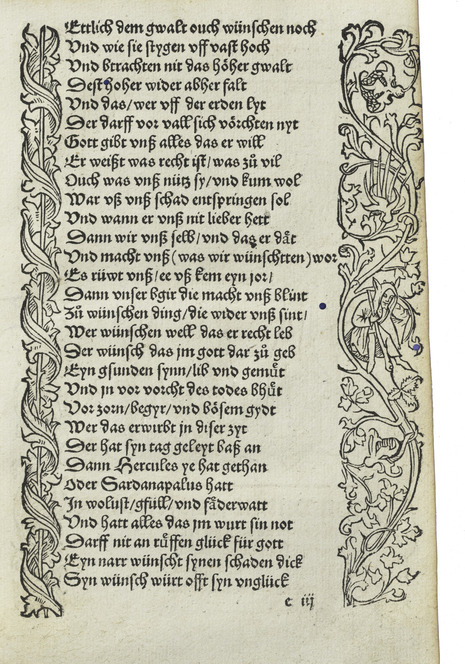 Ettlich dem gwalt ouch wünschen noch
Vnd wie sie stygen vff vast hoch
Vnd btrachten nit das höher gwalt
Dest hoher wider abher falt
Vnd das/wer vff der erden lyt
Der darff vor vall sich vörchten nyt
Gott gibt vnß alles das er will
Er weißt was recht ist/was zů vil
Ouch was vnß nütz sy/vnd kum wol
War vß vnß schad entspringen sol
Vnd wann er vnß nit lieber hett
Dann wir vnß selb/vnd das er dät
Vnd macht vnß (was wir wünschtten) wor
Es rüwt vnß/ee vß kem eyn jor/
Dann vnser bgir die macht vnß blint
Zů wünschen ding/die wider vnß sint/
Wer wünschen well das er recht leb
Der wünsch das jm gott dar zů geb
Eyn gsunden synn/lib vnd gemüt
Vnd jn vor vorcht des todes bhüt
Vor zorn/begyr/vnd bösem gydt
Wer das erwirbt in diser zyt
Der hat syn tag geleyt baß an
Dann Hercules ye hat gethan
Oder Sardanapalus hatt
In wolust/gfüll/vnd fäderwatt
Vnd hatt alles das jm wurt sin not
Darff nit an růffen glück für gott
Eyn narr wünscht synen schaden dick
Syn wünsch würt offt syn vnglück
c iij